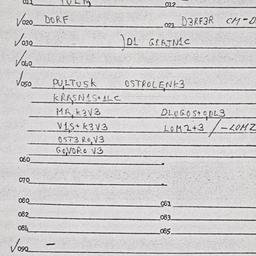 √020 DORF 021 D3RF3R CM-D
√030 )D1 G1RTN1C
√040
√050 PULTUSK OSTROLENK3
KRASN1S+1LC
MA,K3V3 DLUGOS+ODL3
V1S+K3V3 LOM2+3 /-LOMZ
OST3RO,V3
GOVORO V3
060
070
080 081
082 083
084 085
√090 -